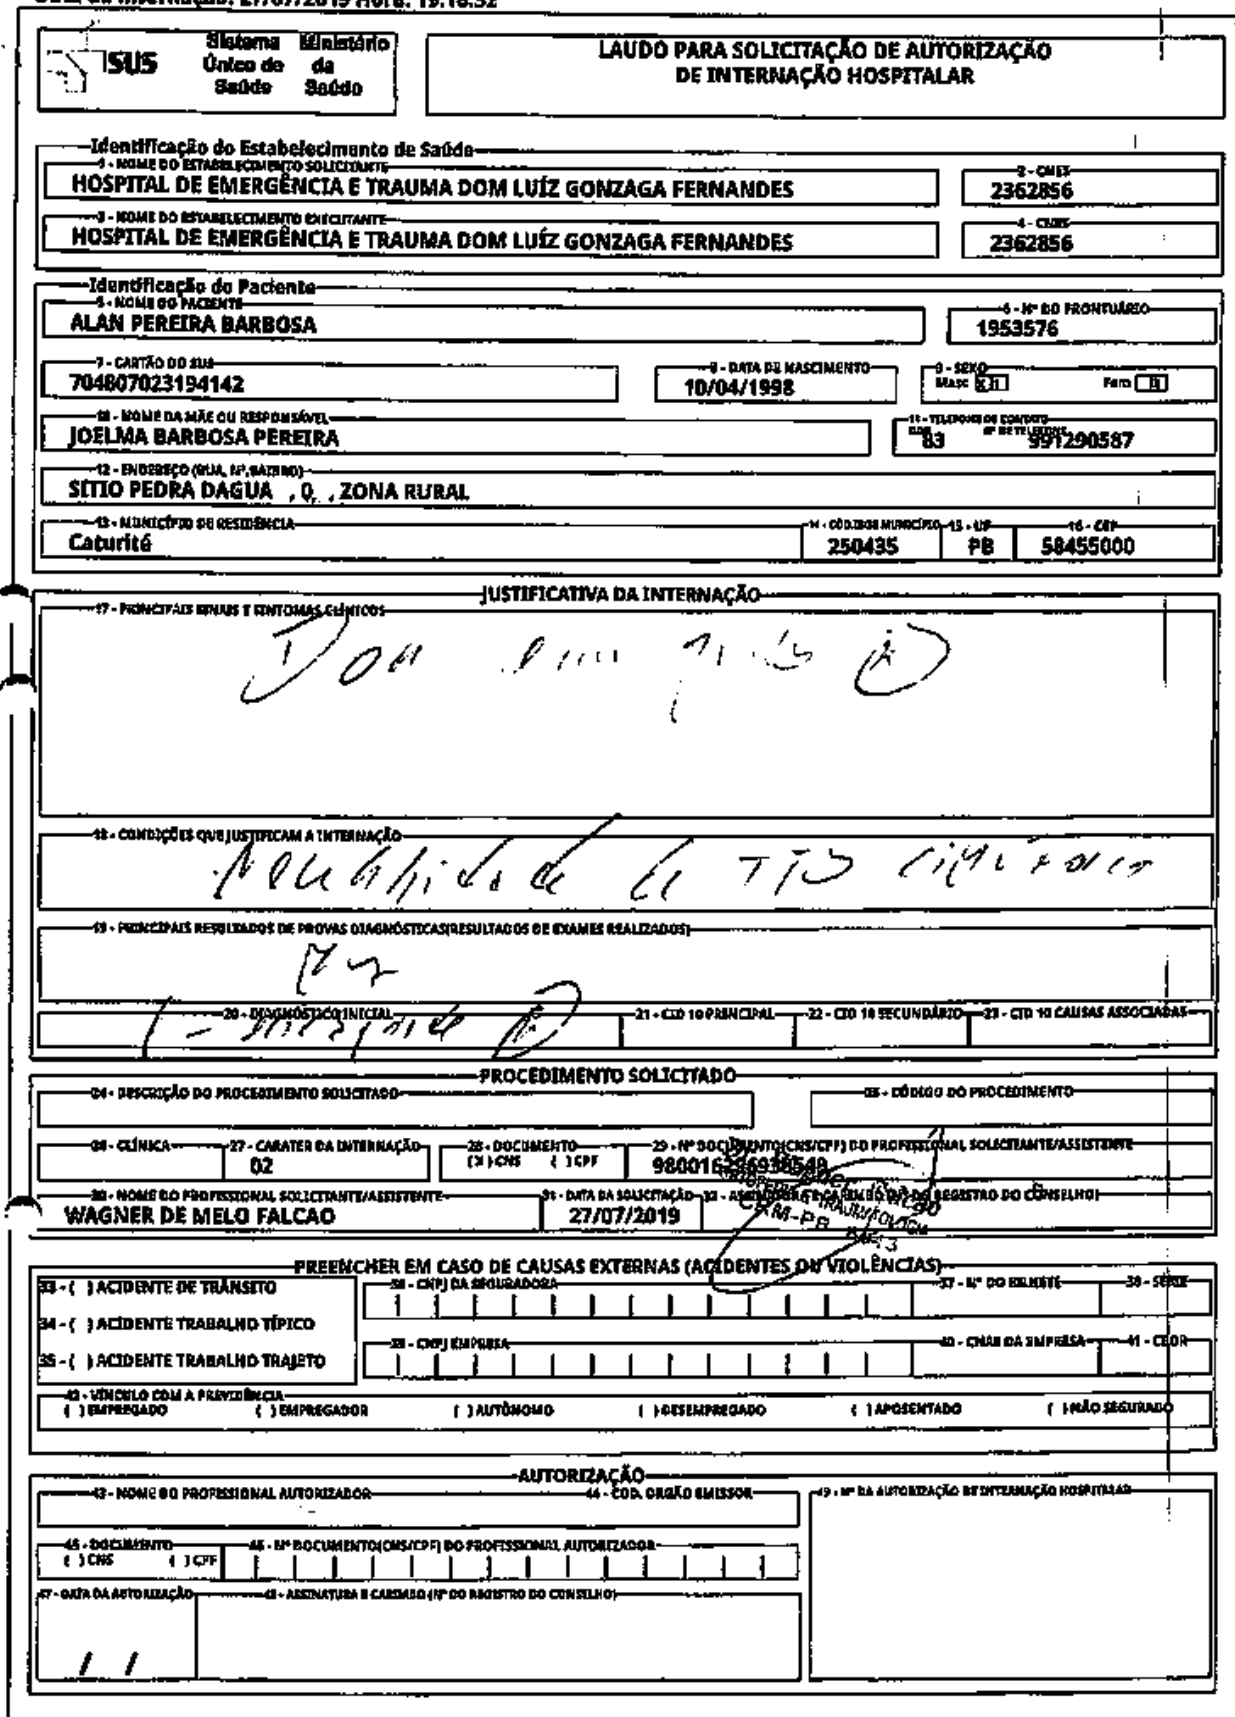 27/07/2019 Hora: 19:18:52
SUS
Sistema Ministério
Único de da
Saúde Saúde
LAUDO PARA SOLICITAÇÃO DE AUTORIZAÇÃO
DE INTERNAÇÃO HOSPITALAR
Identificação do Estabelecimento de Saúde
1 - NOME DO ESTABELECIMENTO SOLICITANTE 2 - CNES
HOSPITAL DE EMERGÊNCIA E TRAUMA DOM LUÍZ GONZAGA FERNANDES 2362856
3 - NOME DO ESTABELECIMENTO EXECUTANTE 4 - CNES
HOSPITAL DE EMERGÊNCIA E TRAUMA DOM LUÍZ GONZAGA FERNANDES 2362856
Identificação do Paciente
5 - NOME DO PACIENTE 6 - Nº DO PRONTUÁRIO
ALAN PEREIRA BARBOSA 1953576
7 - CARTÃO DO SUS 8 - DATA DE NASCIMENTO 9 - SEXO
704807023194142 10/04/1998 Masc Fem
10 - NOME DA MÃE OU RESPONSÁVEL 11 - TELEFONE DE CONTATO
JOELMA BARBOSA PEREIRA DDD 83 Nº DE TELEFONE 991290587
12 - ENDEREÇO (RUA, Nº, BAIRRO)
SÍTIO PEDRA DAGUA , 0 , ZONA RURAL
13 - MUNICÍPIO DE RESIDÊNCIA 14 - CÓD.IBGE MUNICÍPIO 15 - UF 16 - CEP
Caturité 250435 PB 58455000
JUSTIFICATIVA DA INTERNAÇÃO
17 - PRINCIPAIS SINAIS E SINTOMAS CLÍNICOS
18 - CONDIÇÕES QUE JUSTIFICAM A INTERNAÇÃO
19 - PRINCIPAIS RESULTADOS DE PROVAS DIAGNÓSTICAS(RESULTADOS DE EXAMES REALIZADOS)
20 - DIAGNÓSTICO INICIAL 21 - CID 10 PRINCIPAL 22 - CID 10 SECUNDÁRIO 23 - CID 10 CAUSAS ASSOCIADAS
PROCEDIMENTO SOLICITADO
24 - DESCRIÇÃO DO PROCEDIMENTO SOLICITADO 25 - CÓDIGO DO PROCEDIMENTO
26 - CLÍNICA 27 - CARATER DA INTERNAÇÃO 28 - DOCUMENTO 29 - Nº DOCUMENTO(CNS/CPF) DO PROFISSIONAL SOLICITANTE/ASSISTENTE
02 (X) CNS ( ) CPF
30 - NOME DO PROFISSIONAL SOLICITANTE/ASSISTENTE 31 - DATA DA SOLICITAÇÃO 32 - ASSINATURA E CARIMBO (Nº DO REGISTRO DO CONSELHO)
WAGNER DE MELO FALCAO 27/07/2019
CRM-PB
PREENCHER EM CASO DE CAUSAS EXTERNAS (ACIDENTES OU VIOLÊNCIAS)
33 - ( ) ACIDENTE DE TRÂNSITO 36 - CNPJ DA SEGURADORA 37 - Nº DO BILHETE 38 - SÉRIE
34 - ( ) ACIDENTE TRABALHO TÍPICO
35 - ( ) ACIDENTE TRABALHO TRAJETO 39 - CNPJ EMPRESA 40 - CNAE DA EMPRESA 41 - CBOR
42 - VÍNCULO COM A PREVIDÊNCIA
( ) EMPREGADO ( ) EMPREGADOR ( ) AUTÔNOMO ( ) DESEMPREGADO ( ) APOSENTADO ( ) NÃO SEGURADO
AUTORIZAÇÃO
43 - NOME DO PROFISSIONAL AUTORIZADOR 44 - COD. ORGÃO EMISSOR 49 - Nº DA AUTORIZAÇÃO DE INTERNAÇÃO HOSPITALAR
45 - DOCUMENTO 46 - Nº DOCUMENTO(CNS/CPF) DO PROFISSIONAL AUTORIZADOR
( ) CNS ( ) CPF
47 - DATA DA AUTORIZAÇÃO 48 - ASSINATURA E CARIMBO (Nº DO REGISTRO DO CONSELHO)
/ /